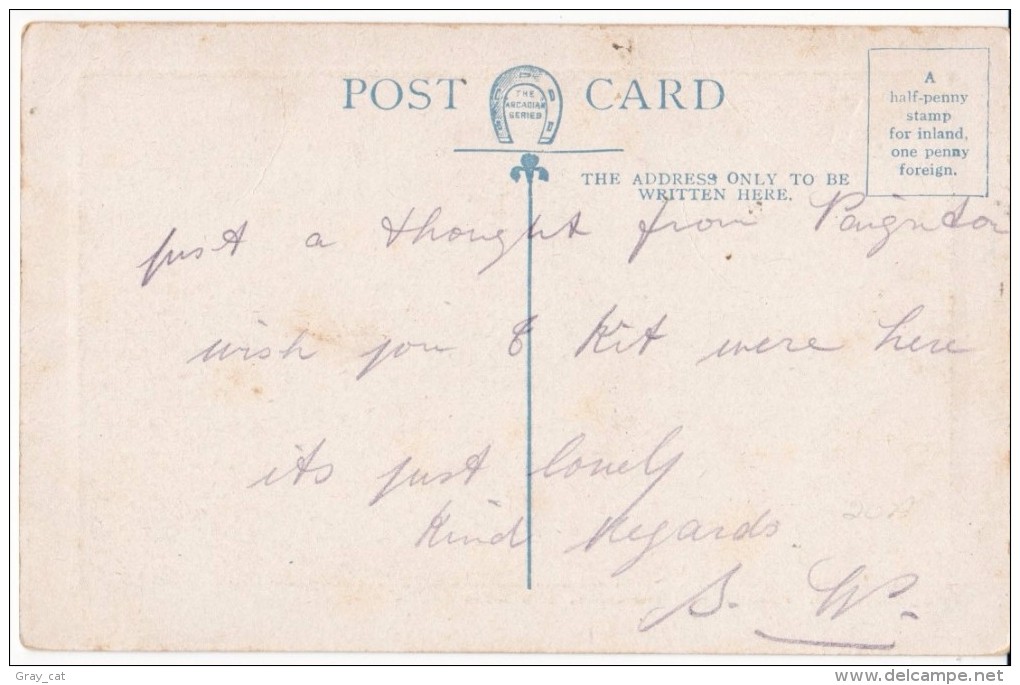 POST CARD
THE
ARCADIAN
SERIES
A
half-penny
stamp
for inland,
one penny
foreign.
THE ADDRESS ONLY TO BE
WRITTEN HERE.
just a thought from Paignton
wish you & Kit were here
its just lovely
Kind Regards
S. W.
Gray_cat
delcampe.net